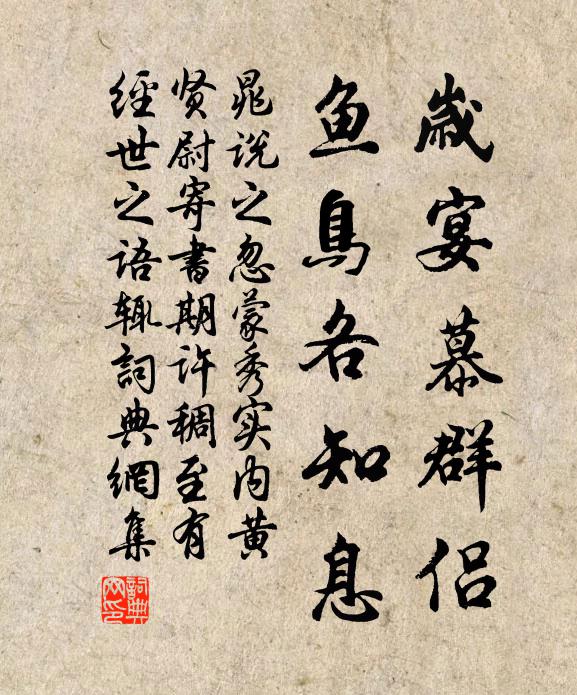 歲宴慕群侣
鱼鳥各知息
晁说之忽蒙秀实内黄
贤尉寄書期许稠至有
經世之语辄詞典網集
詞典
网印